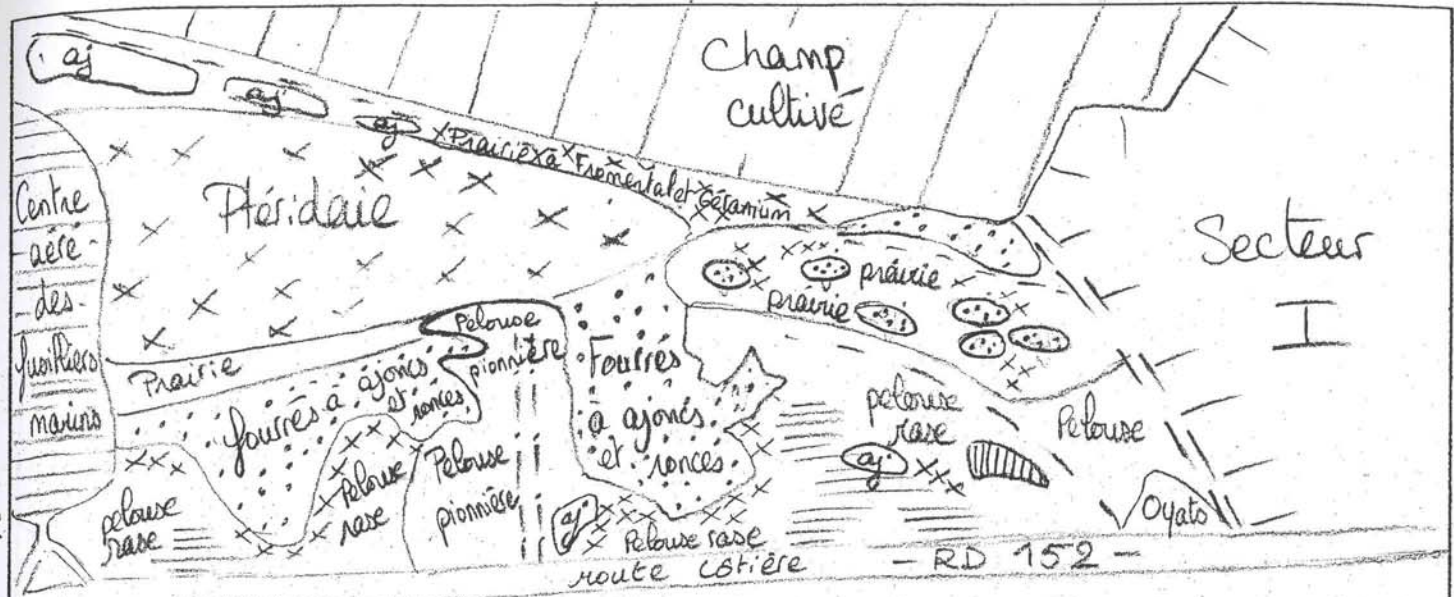 Champ
cultivé
aj
aj
aj
Prairie à Fromental et Géranium
Centre
aéré
des
fusilliers
marins
Ptéridaie
Secteur
I
prairie
prairie
Pelouse
pionnière
Prairie
Fourrés
à ajoncs
et ronces
fourrés à ajoncs
et ronces
pelouse
rase
Pelouse
aj
Pelouse
rase
Pelouse
pionnière
pelouse
rase
aj
Oyats
Pelouse rase
route côtière - RD 152 -